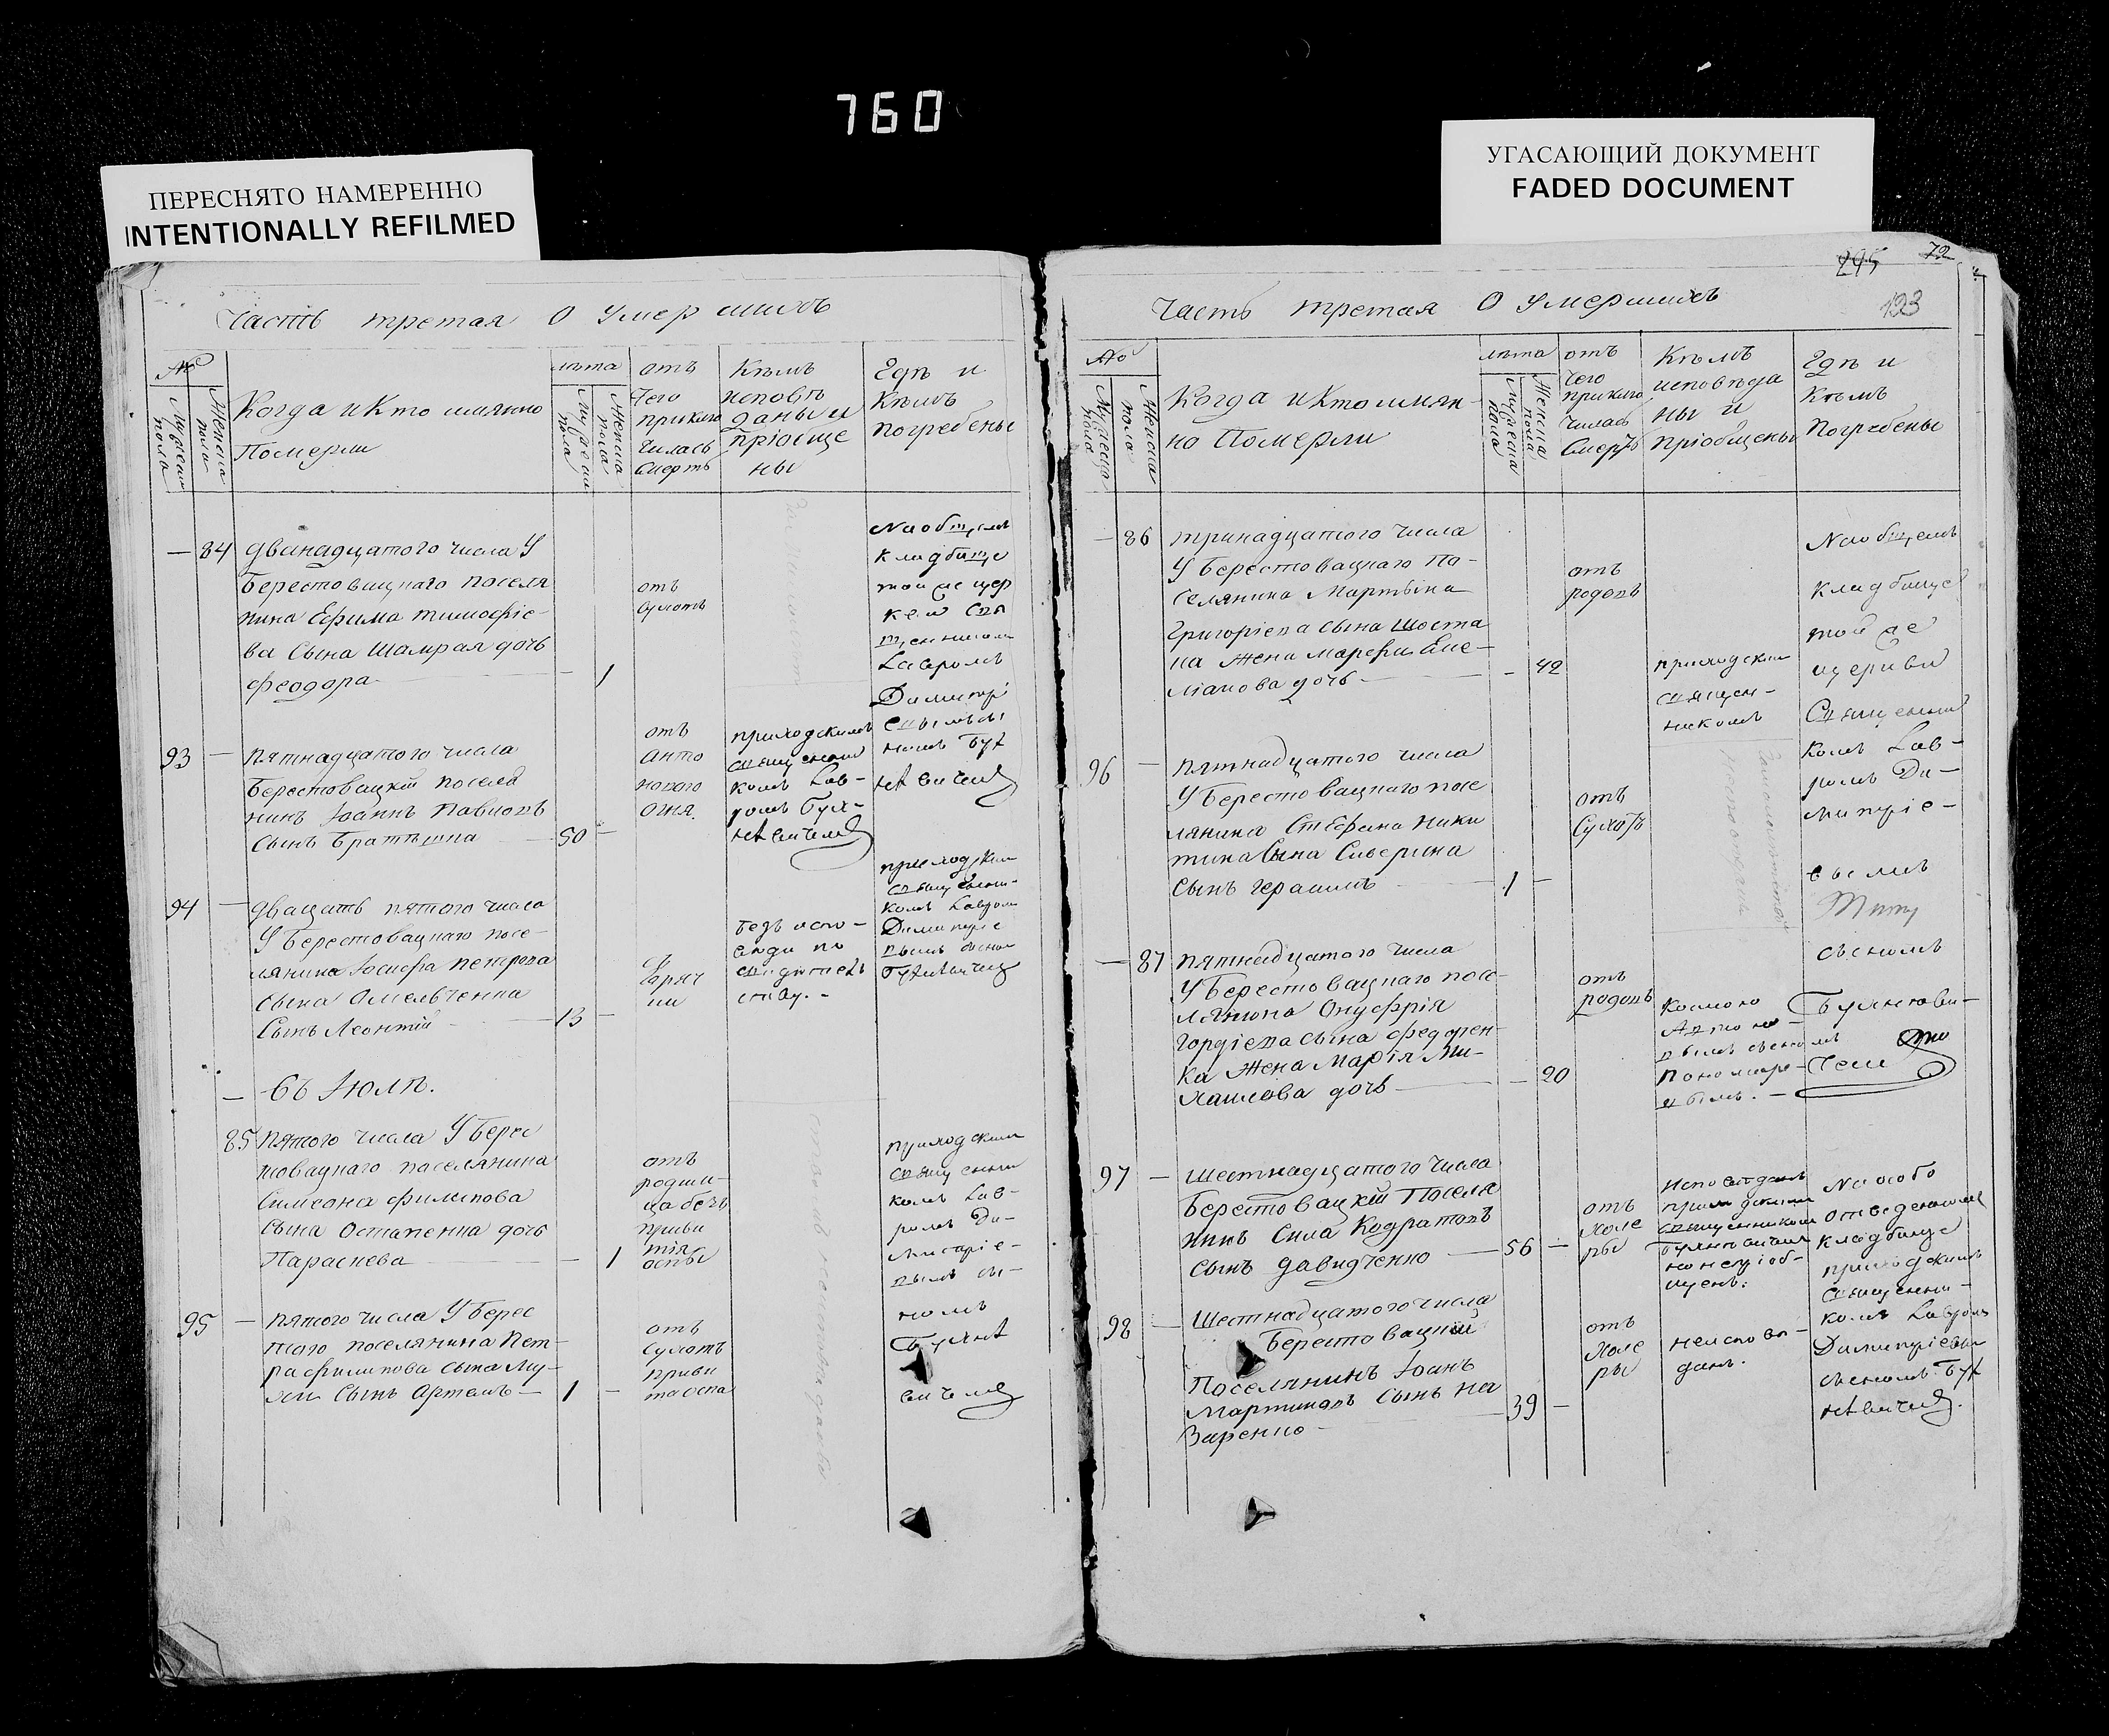 760
ПЕРЕСНЯТО НАМЕРЕННО
INTENTIONALLY REFILMED
УГАСАЮЩИЙ ДОКУМЕНТ
FADED DOCUMENT
Часть третая О Умершихъ
№
Мужеска пола
Женска пола
Когда и Кто имянно
Померли
лѣта
Мужеска пола
Женска пола
отъ
Чего
приклю
чилась
Смерть
Кѣмъ
исповѣ
даны и
пріобще
ны
Гдѣ и
Кѣмъ
погребены
— 84 двана­дцатого числа У
Берестовацкаго поселя
нина Ефима тимофіе
ва Сына Шамрая дочь
Феодора — 1
отъ
сухотъ
На общемъ
кладбище
той же цер
кви свя
щенником
Лавромъ
Димитрі
евымъ сы
номъ Бух
93 — пятнадцатого числа
Берестовацкій поселя
нинъ Іоаннъ Павловъ
Сынъ Братѣшка — 50 —
отъ
Анто
нового
огня.
приходскимъ
священни
комъ Лав-
ромъ
94 — двацать пятого числа
У Берестовацкаго посе-
лянина Іосифа петрова
сына Омельченка
Сынъ Леонтій — 13 —
горяч
ки
безъ испо-
веди по
ству. -
приходским
священни-
комъ Лавром
Димитріе
вымъ сыном
— Въ Іюлѣ.
85 пятого числа У Берес
товацкаго поселянина
Симеона филипова
Сына Остапенка дочь
Параскева — 1
отъ
родим-
ца безъ
приви
тія
оспы
приходским
священни
комъ Лав-
ромъ Ди-
митріе-
вымъ сы-
номъ
95 — пятого числа У Берес
тов­ого поселянина Пет-
ра филипова сына Му-
хи Сынъ Артемъ — 1 —
отъ
сухотъ
приви
та оспа
295
72
123
Часть третая О Умершихъ
№
Мужеска пола
Женска пола
Когда и Кто имян-
но Померли
лѣта
Мужеска пола
Женска пола
отъ
Чего
приклю
чилась
Смерть
Кѣмъ
исповѣда
ны и
пріобщены
Гдѣ и
Кѣмъ
Погребены
— 86 тринадцатого числа
У Берестовацкаго По-
селянина Мартына
Григоріева сына Шоста
ка жена Марфа Еме-
ліанова дочь — 42
отъ
родовъ
приходским
священ-
никомъ
На общемъ
кладбище
той же
церкви
Священни
комъ Лав-
ромъ Ди-
митріе-
вымъ
96 — пятнадцатого числа
У Берестовацкаго посе
лянина Стефана Ники
тина Сына Сиверина
Сынъ герасимъ — 1 —
отъ
Сухотъ
— 87 пятнадцатого числа
У Берестовацкаго посе-
лянина Онуфрія
Гордіева сына федорен-
ка Жена Марія Ми-
хаилова дочь — 20
отъ
родовъ
сыномъ
97 — Шестнадцатого числа
Берестовацкій Поселя
нинъ Сила Кодратовъ
сынъ Давидченко — 56 —
отъ
холе
ры
Исповѣданъ
но не пріоб-
щенъ.
На особо
отведенномъ
кладбище
приходскимъ
священни-
комъ Лавромъ
Димитріевым
сыномъ
98 — Шестнадцатого числа
Берестовацкій
Поселянинъ Іоанъ
Мартиновъ Сынъ На
заренко — 39 —
отъ
Холе
ры
неисповѣ-
данъ.